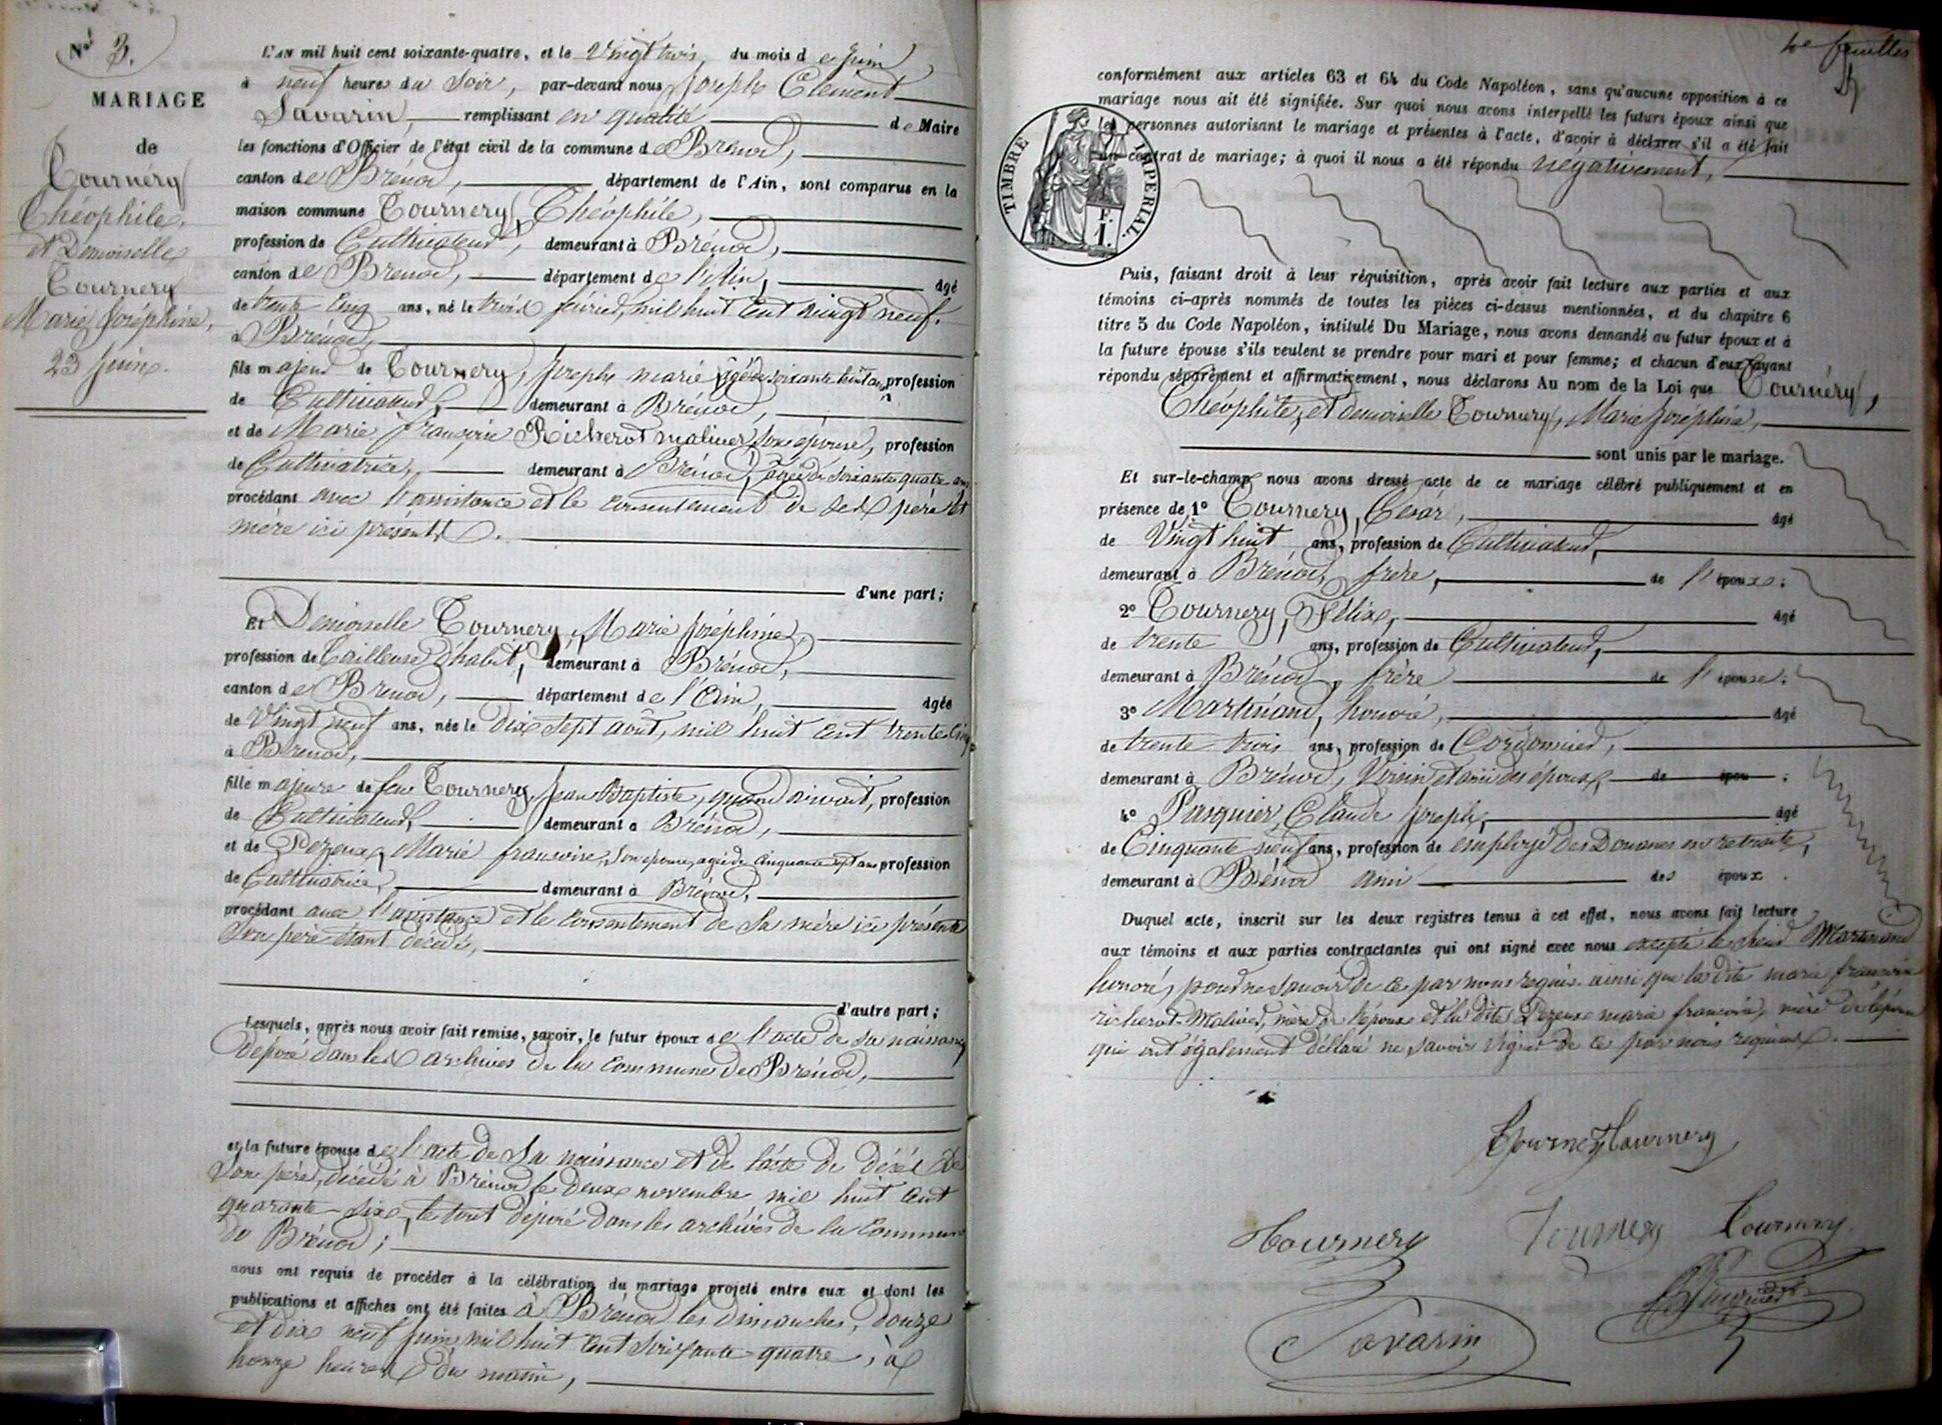 N° 3.
MARIAGE
de
Tournery
Théophile,
et Demoiselle
Tournery
Marie Joséphine,
23 Juin.
L'AN mil huit cent soixante-quatre, et le Vingt trois du mois de Juin
à neuf heures du Soir, par-devant nous Joseph Clément
Savarin, remplissant en qualité de Maire
les fonctions d'Officier de l'état civil de la commune de Brénod,
canton de Brénod, département de l'Ain, sont comparus en la
maison commune Tournery, Théophile,
profession de Cultivateur, demeurant à Brénod,
canton de Brenod, département de l'Ain, âgé
de trente cinq ans, né le trois février, mil huit cent vingt neuf.
à Brénod,
fils majeur de Tournery, Joseph marie âgé de soixante huit ans, profession
de Cultivateur, demeurant à Brénod,
et de Marie françoise Richerot malivert son épouse, profession
de Cultivatrice, demeurant à Brénod, âgée de soixante quatre ans
procédant avec l'assistance et le consentement de ses père et
mère ici présents.
d'une part;
Et Demoiselle Tournery, Marie Joséphine,
profession de Tailleuse d'habits, demeurant à Brénod,
canton de Brenod, département de l'Ain, âgée
de Vingt neuf ans, née le dix sept août, mil huit cent trente cinq
à Brenod,
fille majeure de feu Tournery, Jean Baptiste, quand vivait, profession
de Cultivateur, demeurant à Brénod,
et de Pezeux, Marie françoise, son épouse, agée de cinquante sept ans profession
de Cultivatrice, demeurant à Brénod,
procédant avec l'assistance et le consentement de sa mère ici présente
Son père étant décédé,
d'autre part;
Lesquels, après nous avoir fait remise, savoir, le futur époux de l'acte de sa naissance
déposé dans les archives de la commune de Brénod,
et la future épouse de l'acte de sa naissance et de l'acte de décès de
son père, décédé à Brénod le deux novembre mil huit cent
quarante-six, le tout déposé dans les archives de la commune
de Brénod;
nous ont requis de procéder à la célébration du mariage projeté entre eux et dont les
publications et affiches ont été faites à Brénod les dimanches, douze
et dix neuf juin mil huit cent soixante-quatre, à
honze heures du matin,
4e feuillet
conformément aux articles 63 et 64 du Code Napoléon, sans qu'aucune opposition à ce
mariage nous ait été signifiée. Sur quoi nous avons interpellé les futurs époux ainsi que
les personnes autorisant le mariage et présentes à l'acte, d'avoir à déclarer s'il a été fait
un contrat de mariage; à quoi il nous a été répondu négativement,
TIMBRE IMPERIAL.
Puis, faisant droit à leur réquisition, après avoir fait lecture aux parties et aux
témoins ci-après nommés de toutes les pièces ci-dessus mentionnées, et du chapitre 6
titre 5 du Code Napoléon, intitulé Du Mariage, nous avons demandé au futur époux et à
la future épouse s'ils veulent se prendre pour mari et pour femme; et chacun d'eux ayant
répondu séparément et affirmativement, nous déclarons Au nom de la Loi que Tournéry,
Théophile, et demoiselle Tournery, Marie Joséphine,
sont unis par le mariage.
Et sur-le-champ nous avons dressé acte de ce mariage célébré publiquement et en
présence de 1° Tournery, César, âgé
de Vingt huit ans, profession de Cultivateur,
demeurant à Brénod, frère, de l'époux:
2° Tournery, Félix, âgé
de trente ans, profession de Cultivateur,
demeurant à Brénod, frère de l'épouse:
3° Martinand, honoré, âgé
de trente trois ans, profession de Cordonnier,
demeurant à Brénod, Voisin et ami des époux, de épou :
4° Pasquier, Claude Joseph, âgé
de Cinquante neuf ans, profession de employé des Douanes en retraite,
demeurant à Brénod ami des époux.
Duquel acte, inscrit sur les deux registres tenus à cet effet, nous avons fait lecture
aux témoins et aux parties contractantes qui ont signé avec nous excepté le sieur Martinand
honoré, pour ne savoir de ce par nous requis ainsi que la dite marie françoise
richerot-Malivert, mère de l'époux et la dite Pezeux marie françoise, mère de l'épouse
qui ont également déclaré ne savoir signer de ce par nous requises.
Tournery Tournery
Tournery Tournery Tournery
Savarin